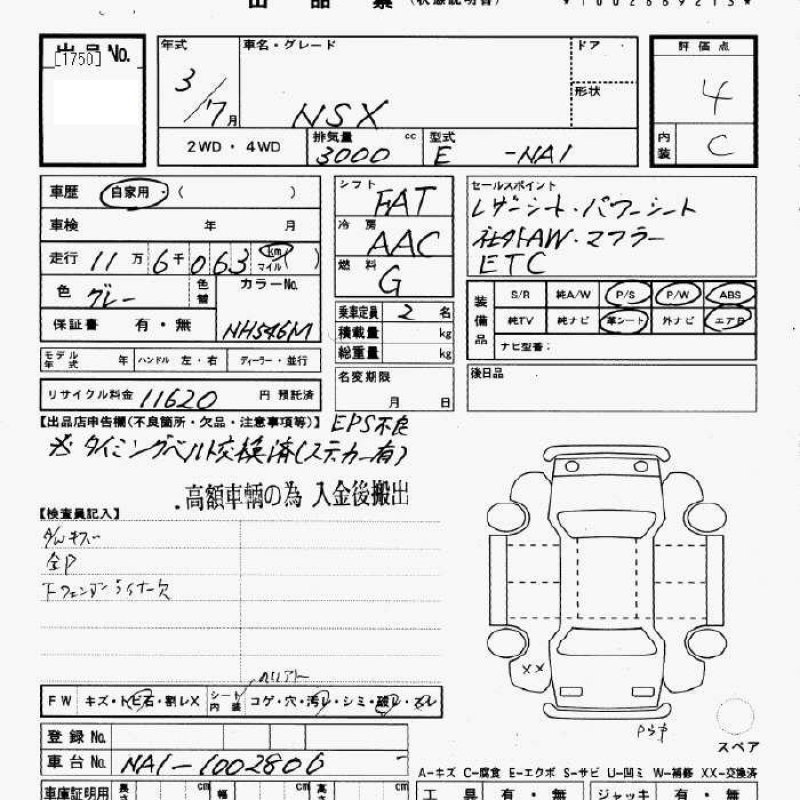 出品票 (状態説明書)
出品No. 年式 車名・グレード ドア 評価点
[1750]
3/7月 NSX 形状 4
2WD・4WD 排気量 3000 cc 型式 E -NA1 内装 C
車歴 自家用・( )
シフト FAT
セールスポイント
レザーシート・パワーシート
車検 年 月
冷房 AAC
社外AW・マフラー
走行 11万6千063 km マイル ( )
燃料 G
ETC
色 グレー 色替 カラーNo. NH546M
装備品 S/R 純A/W P/S P/W ABS
純TV 純ナビ 革シート 外ナビ エアB
ナビ型番:
保証書 有・無
乗車定員 2 名
積載量 kg
総重量 kg
モデル年式 年 ハンドル 左・右 ディーラー・並行
名変期限 月 日
後日品
リサイクル料金 11620 円 預託済
【出品店申告欄(不良箇所・欠品・注意事項等)】 EPS不良
タイミングベルト交換済(ステカー有)
.高額車輌の為 入金後搬出
【検査員記入】
全P
下フェンダーライナー欠
XX
FW キズ・トビ石・割レX シート内装 コゲ・穴・汚レ・シミ・破レ・スレ
登録No.
車台No. NA1-1002800 -
スペア
A-キズ C-腐食 E-エクボ S-サビ U-凹ミ W-補修 XX-交換済
車庫証明用 長さ cm 幅 cm 高さ cm 工具 有・無 ジャッキ 有・無